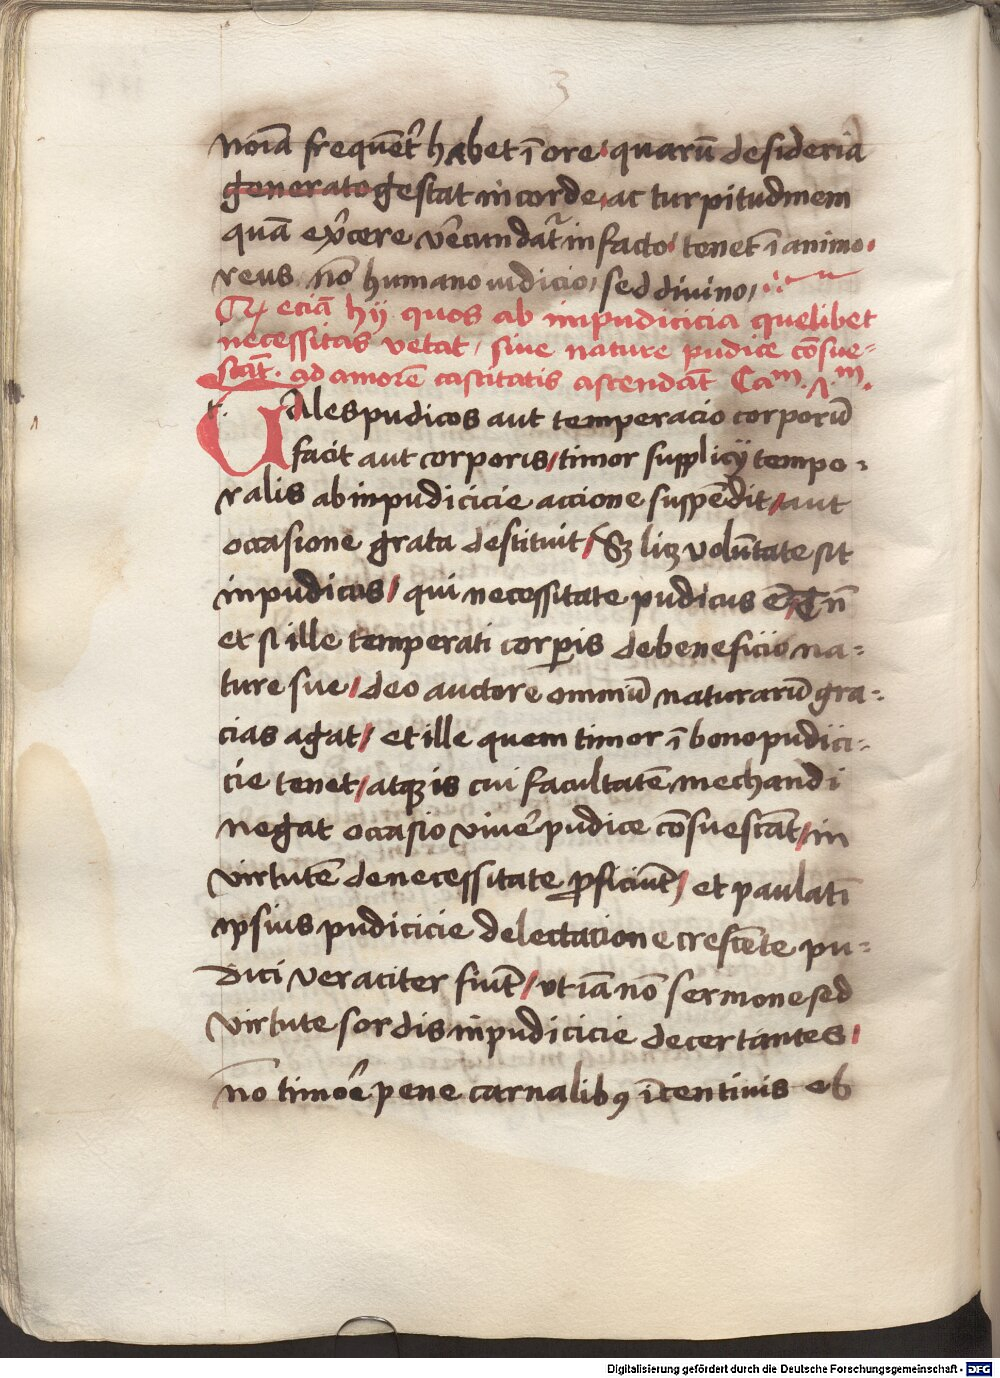 3
noīa frequēt̉ habet ī ore quarū desideria
generato gestat in corde, ac turpitudinem
quā ex̉cere verecundat̉ in facto tenet ī animo
reus nō humano iudicio, sed divino,
Qꝫ eciā hÿ quos ab impudicicia quelibet
necessitas vetat, siue nature pudice cōsue=
scāt. ad amorē castitatis ascendāt Cam. 
t. Ales pudicos aut temperacio corporū
facit aut corporis / timor supplicÿ tempo-
ralis ab inpudicicie accione suspēdit / aut
occasione grata destituit / Sꝫ licꝫ volūtate sit
inpudicus / qui necessitate pudicus ē Tn̄
et si ille temperati corꝑis de beneficio na=
ture sue / deo auctore omniū naturarū gra=
cias agat / et ille quem timor ī bono pudici-
cie tenet / atqꝫ is cui facultatē mechandi
negat occasio viuer̉ pudice cōsuescāt / in
virtutē de necessitate ꝓficiūt / et paulatī
ipsius pudicicie delectacione crescēte pu=
dici veraciter fiūt / vt iā nō sermone sed
virtute sordis inpudicicie decertantes /
nō timor̉e pene carnalibꝰ īcentiuis eb
Digitalisierung gefördert durch die Deutsche Forschungsgemeinschaft - DFG